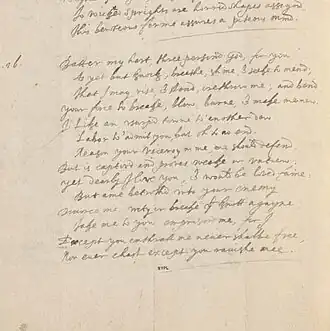 To wicked sprights are horrid shapes assign'd
This beauteous forme assures a piteous mind.
16.
Batter my hart, three person'd God, for you
As yet but knock, breathe, shine, & seeke to mend;
That I may rise, & stand, orethrow me, and bend
your force to breake, blow, burne, & make me new.
I like an usurpt towne to another dew
Labor to admit you, but oh to no end.
Reason your viceroy in me, me should defend
But is captiv'd and proves weake or untrew.
yet dearly I love you, & would be lov'd faine,
But ame betroth'd unto your enemy
Divorce me, unty or breake that knott agayne
Take me to you, emprison me, for I
Except you enthrall me never shalbe free,
Nor ever chast except you ravishe mee.